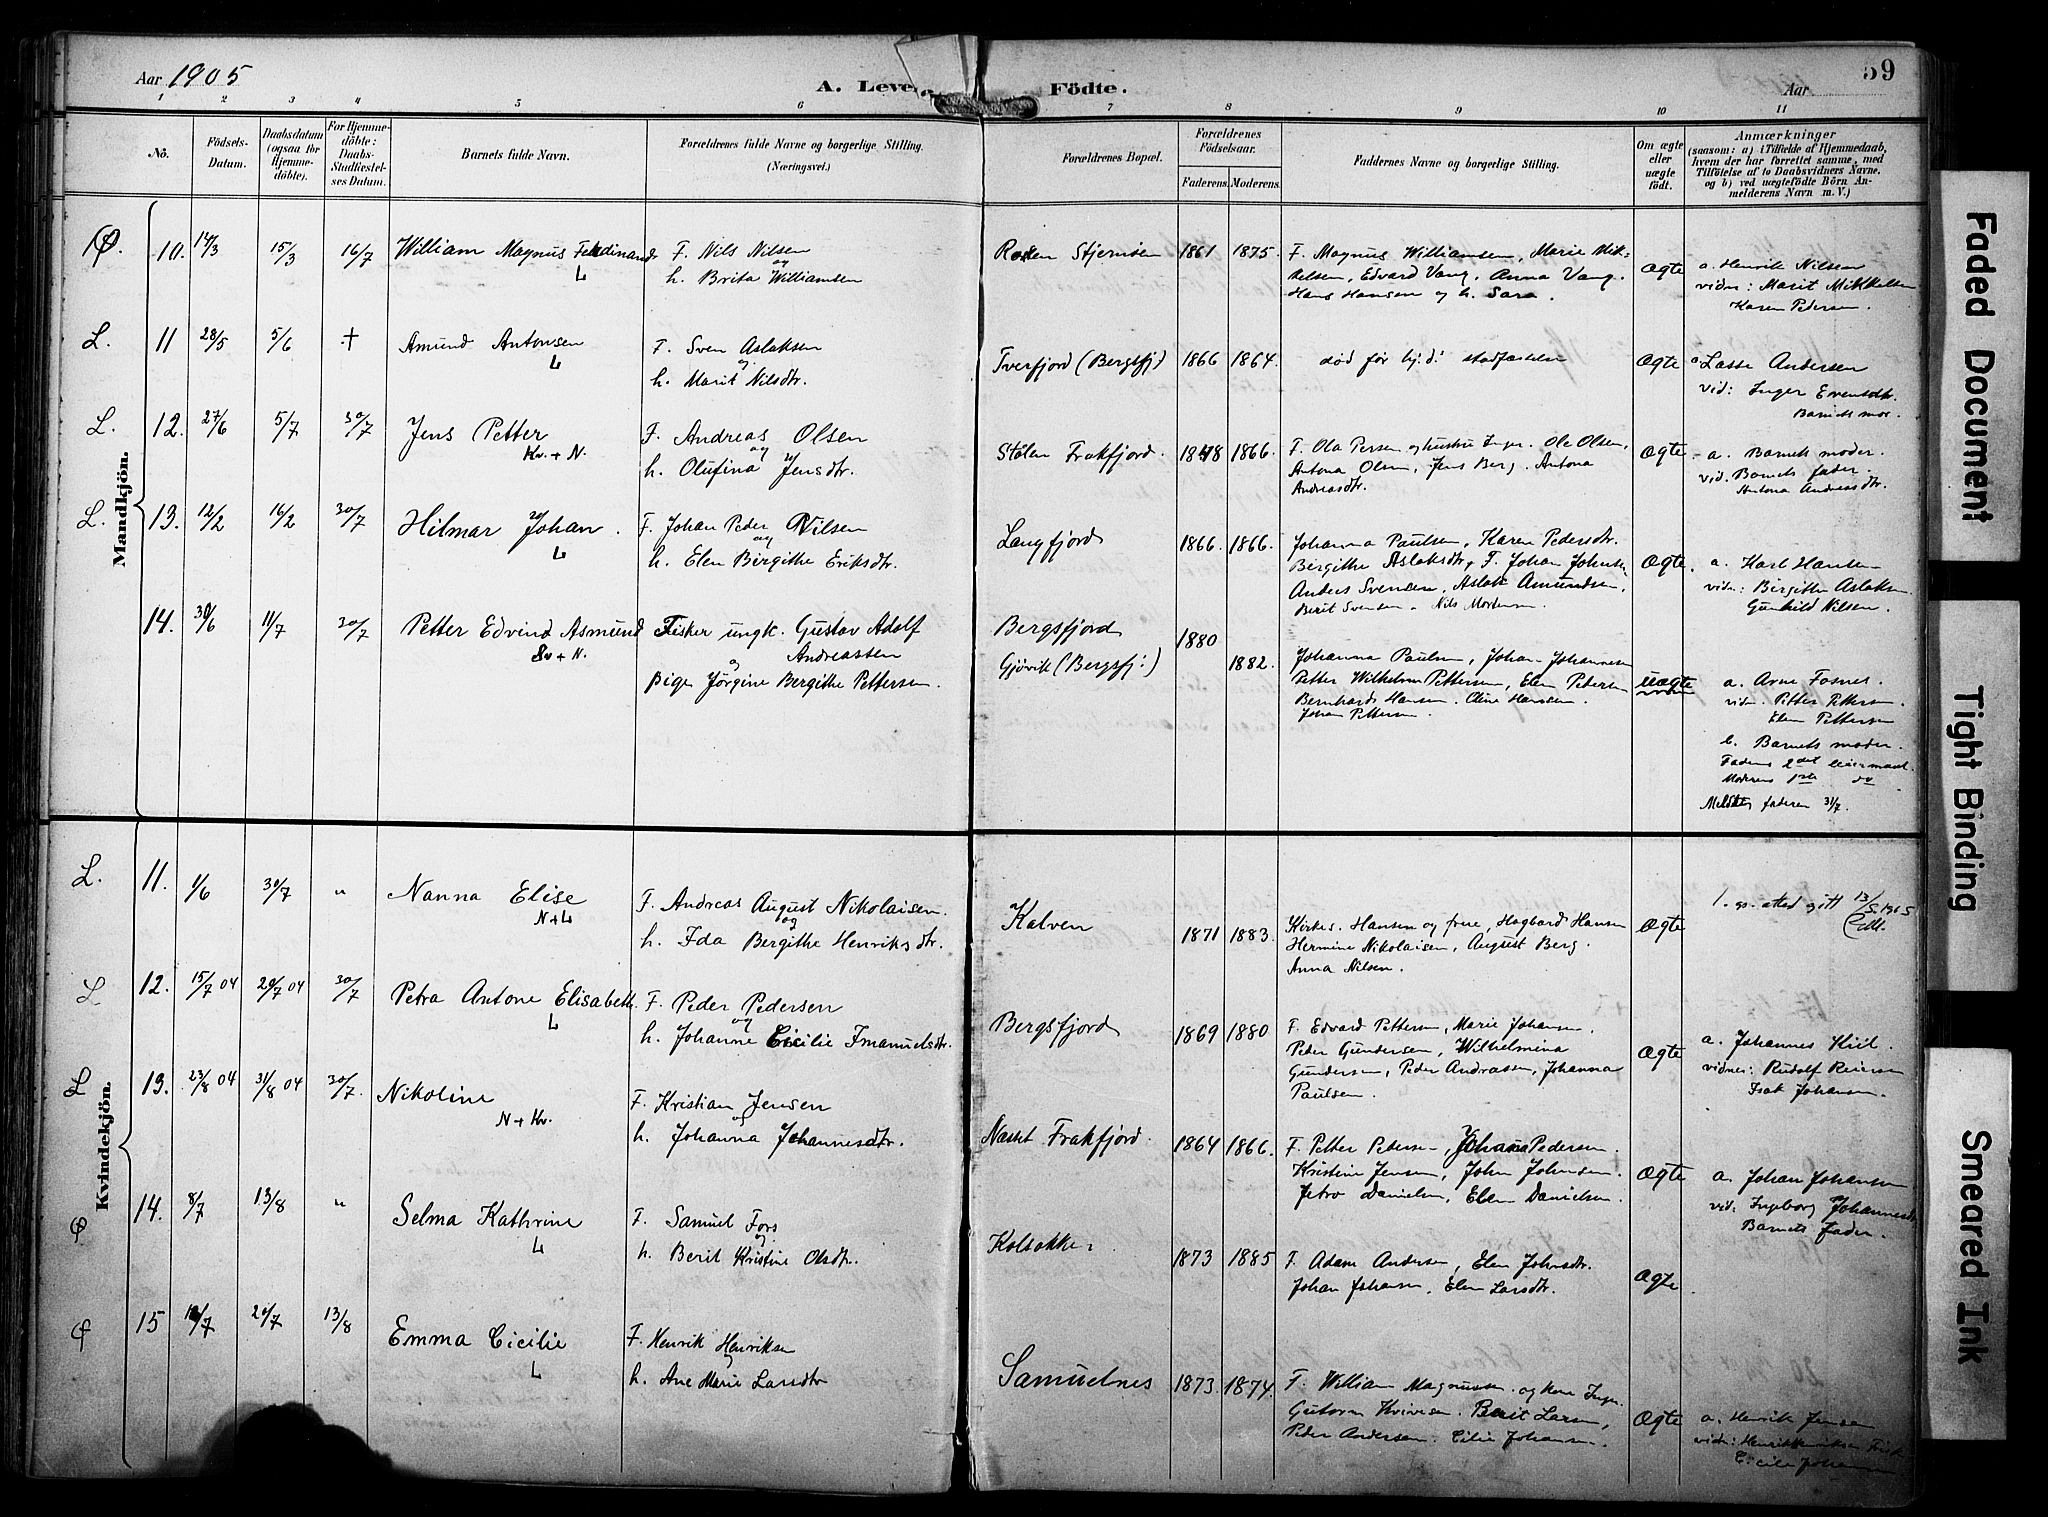 Aar 1905
A. Leve
Födte.
Aar
59
1 2 3 4 5 6 7 8 9 10 11
No.
Födsels-Datum.
Daabsdatum (ogsaa for Hjemme-döbte).
For Hjemme-döbte: Daabs-Stadfæstel-ses Datum.
Barnets fulde Navn.
Forældrenes fulde Navne og borgerlige Stilling.
(Næringsvei.)
Forældrenes Bopæl.
Forældrenes Födselsaar.
Faderens. Moderens.
Faddernes Navne og borgerlige Stilling.
Om ægte eller uægte födt.
Anmærkninger
(saasom: a) i Tilfælde af Hjemmedaab,
hvem der har forrettet samme, med
Tilföielse af to Daabsvidners Navne,
og b) ved uægtefödte Börn An-
melderens Navn m. V.)
Mandkjön.
10. 14/3 15/3 16/7 William Magnus Ferdinand
L
F. Nils Nilsen
og
h. Brita Williamsen
Stjernöen 1861 1875
F. Magnus Williamsen, Marie Mik-
kelsen, Edvard Vang, Anna Vang
Hans Hansen og h. Sara.
Ægte
a. Henrik Nilsen
vidn: Marit Mikkelsen
Karen Pedersen.
L. 11 28/5 5/6 + Amund Antonsen
L
F. Sven Aslaksen
og
h. Marit Nilsdtr.
Tverfjord (Bergsfj.) 1866 1864.
død før hj.d. stadfæstelse
Ægte
a. Lasse Andersen
vid: Inger Evensdtr.
Barnets mor.
L. 12. 27/6 5/7 30/7 Jens Petter
Kv. + N.
F. Andreas Olsen
og
h. Olufina Jensdtr.
Stølen Frakfjord. 1848 1866.
F. Ola Persen og hustru Inger. Ole Olsen,
Antona Olsen, Jens Berg. Antona
Andreasdtr.
Ægte
a. Barnets moder.
vid. Barnets fader.
Antona Andreasdtr.
L. 13. 12/2 16/2 30/7 Hilmar Johan.
L
F. Johan Peder Nilsen
og
h. Elen Birgithe Eriksdtr.
Langfjord 1866. 1866.
Johanna Paulsen, Karen Pedersdtr.
Bergithe Aslaksdtr, F. Johan Johnsen,
Anders Svendsen, Aslak Amundsen,
Berit Svendsen. Nils Mortensen.
Ægte.
a. Karl Hansen
vidn: Birgithe Aslaksen
Gunhild Nilsen.
14. 30/6 11/7 30/7 Petter Edvind Asmund
Sv + N.
Fisker ungk. Gustav Adolf
Andreassen
og
Pige Jörgine Bergithe Pettersen.
Bergsfjord 1880
Gjøvik (Bergsfj:) 1882.
Johanna Paulsen, Johan Johannesen
Petter Wilhelm Pettersen, Elen Pedersen
Bernhard Hansen. Oline Hansen.
Johan Pettersen.
uægte
a. Arne Fosnes.
vidn. Petter Pettersen.
Elen Pettersen
b. Barnets moder.
Faderens 2det leiermaal.
Moderens 1ste do.
Meldt faderen 31/7.
Kvindekjön.
L. 11. 1/6 30/7 " Nanna Elise
N+L
F. Andreas August Nikolaisen.
og
h. Ida Bergithe Henriksdtr.
Kalven 1871 1883.
Kirkes. Hansen og frue, Hagbard Hansen
Hermine Nikolaisen, August Berg.
Anna Nilsen.
Ægte
L 12. 15/7 04 20/7 04 30/7 Petra Antone Elisabeth.
L
F. Peder Pedersen
og
h. Johanne Cicilie Imanuelsdtr.
Bergsfjord 1869 1880
F. Edvard Pettersen, Marie Johansen.
Peder Gundersen, Wilhelmina
Gundersen, Peder Andreassen, Johanna
Paulsen.
Ægte
a. Johannes Kiil.
vidnes: Rudolf Reiersen
Isak Johansen.
L 13. 23/8 04 31/8 04 30/7. Nikoline
N + Kv.
F. Kristian Jensen
og
h. Johanna Johannesdtr.
Næset Frakfjord. 1864 1866.
F. Petter Petersen, Johans Pedersen.
Kristine Jensen, John Johnsen.
Petro Danielsen, Elen Danielsen.
Ægte
a. Johan Johansen
vid: Ingeborg Johannesdtr.
Barnets Fader.
14. 8/7 13/8 " Selma Kathrine
L
F. Samuel Fors
og
h. Berit Kristine Olsdtr.
1873 1885
F. Adam Andersen, Elen Johnsdtr.
Johan Johansen, Elen Larsdtr.
Ægte
15 20/7 13/8 Emma Cicilie
L
F. Henrik Henriksen
og
h. Ane Marie Larsdtr
Samuelnes 1873. 1874.
F. William Magnussen og kone Inger.
Berit Larsen,
Peder Andersen. Cilie Johansen.
Ægte
a. Henrik Jensen
vidn: Henrik Henriksen
Cecilie Johansen
Faded Document
Tight Binding
Smeared Ink